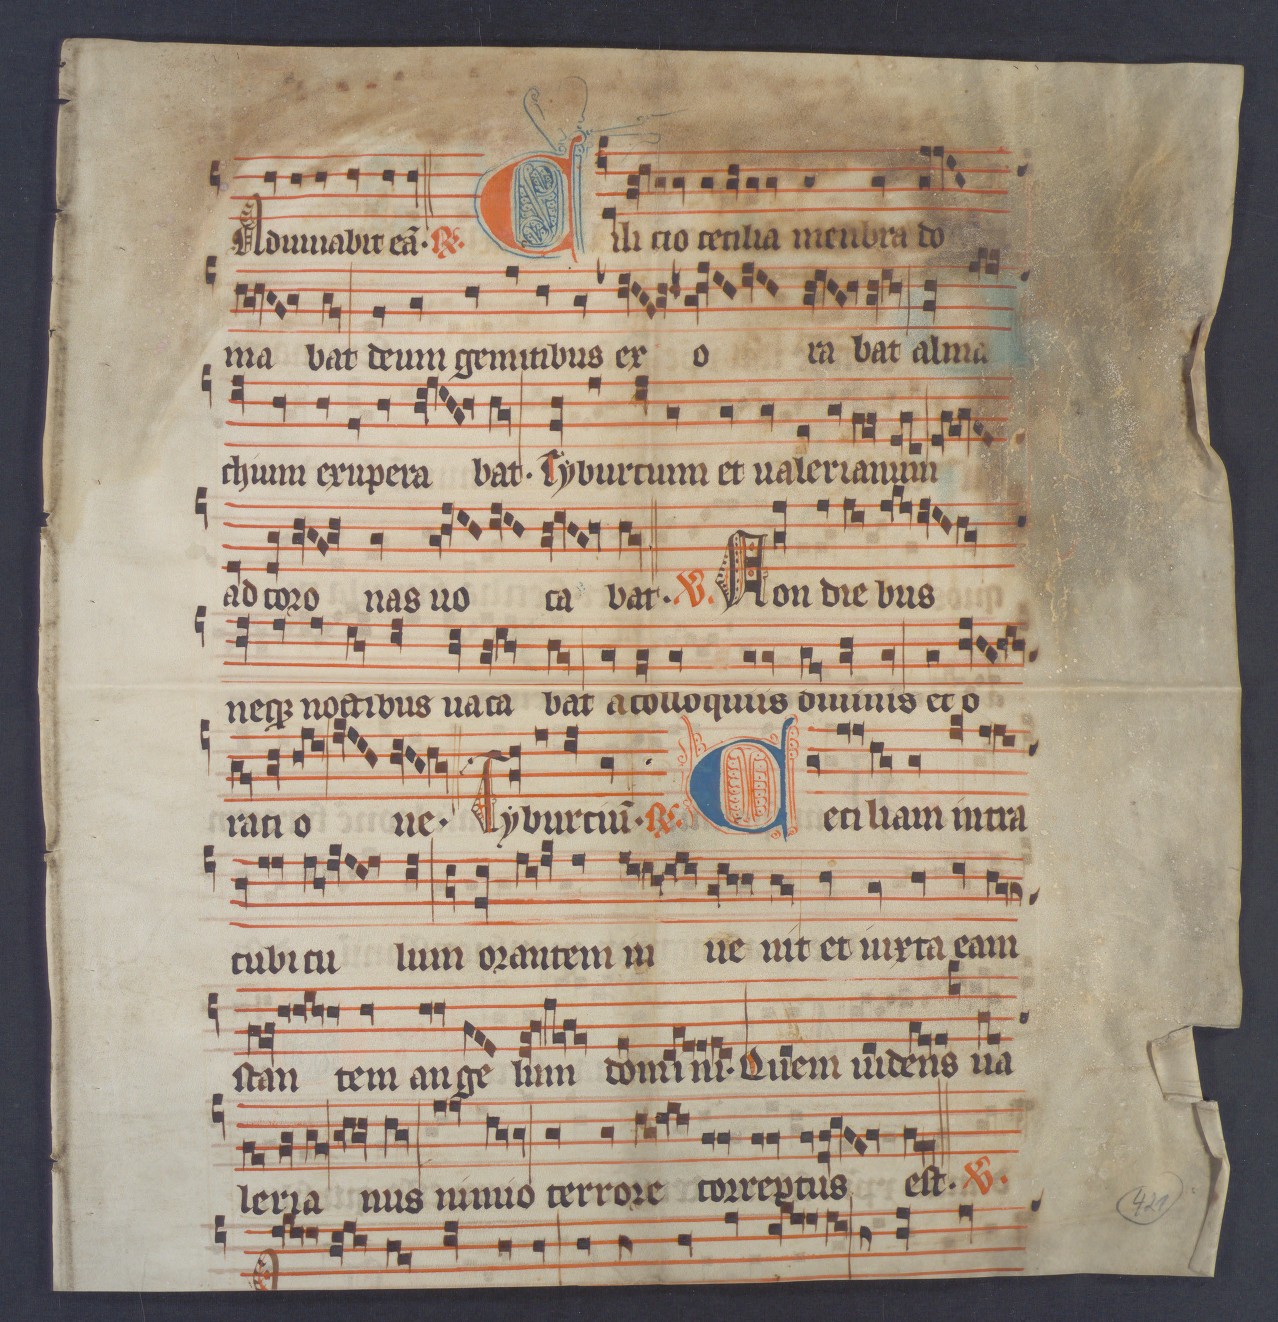 Adiuuabit eā · ℟. Cilicio cecilia menbra do
ma bat deum gemitibus ex o ra bat alma
chium exupera bat · Tyburcium et ualerianum
ad coro nas uo ca bat · ℣. Non die bus
neqꝫ noctibus uaca bat a colloquiis diuinis et o
rati o ne · Tyburciū · ℟. Ceciliam intra
cubicu lum orantem in ue nit et iuxta eam
stan tem an ge lum domi ni · Quem uidens ua
leria nus nimio terrore correptus est · ℣.
421